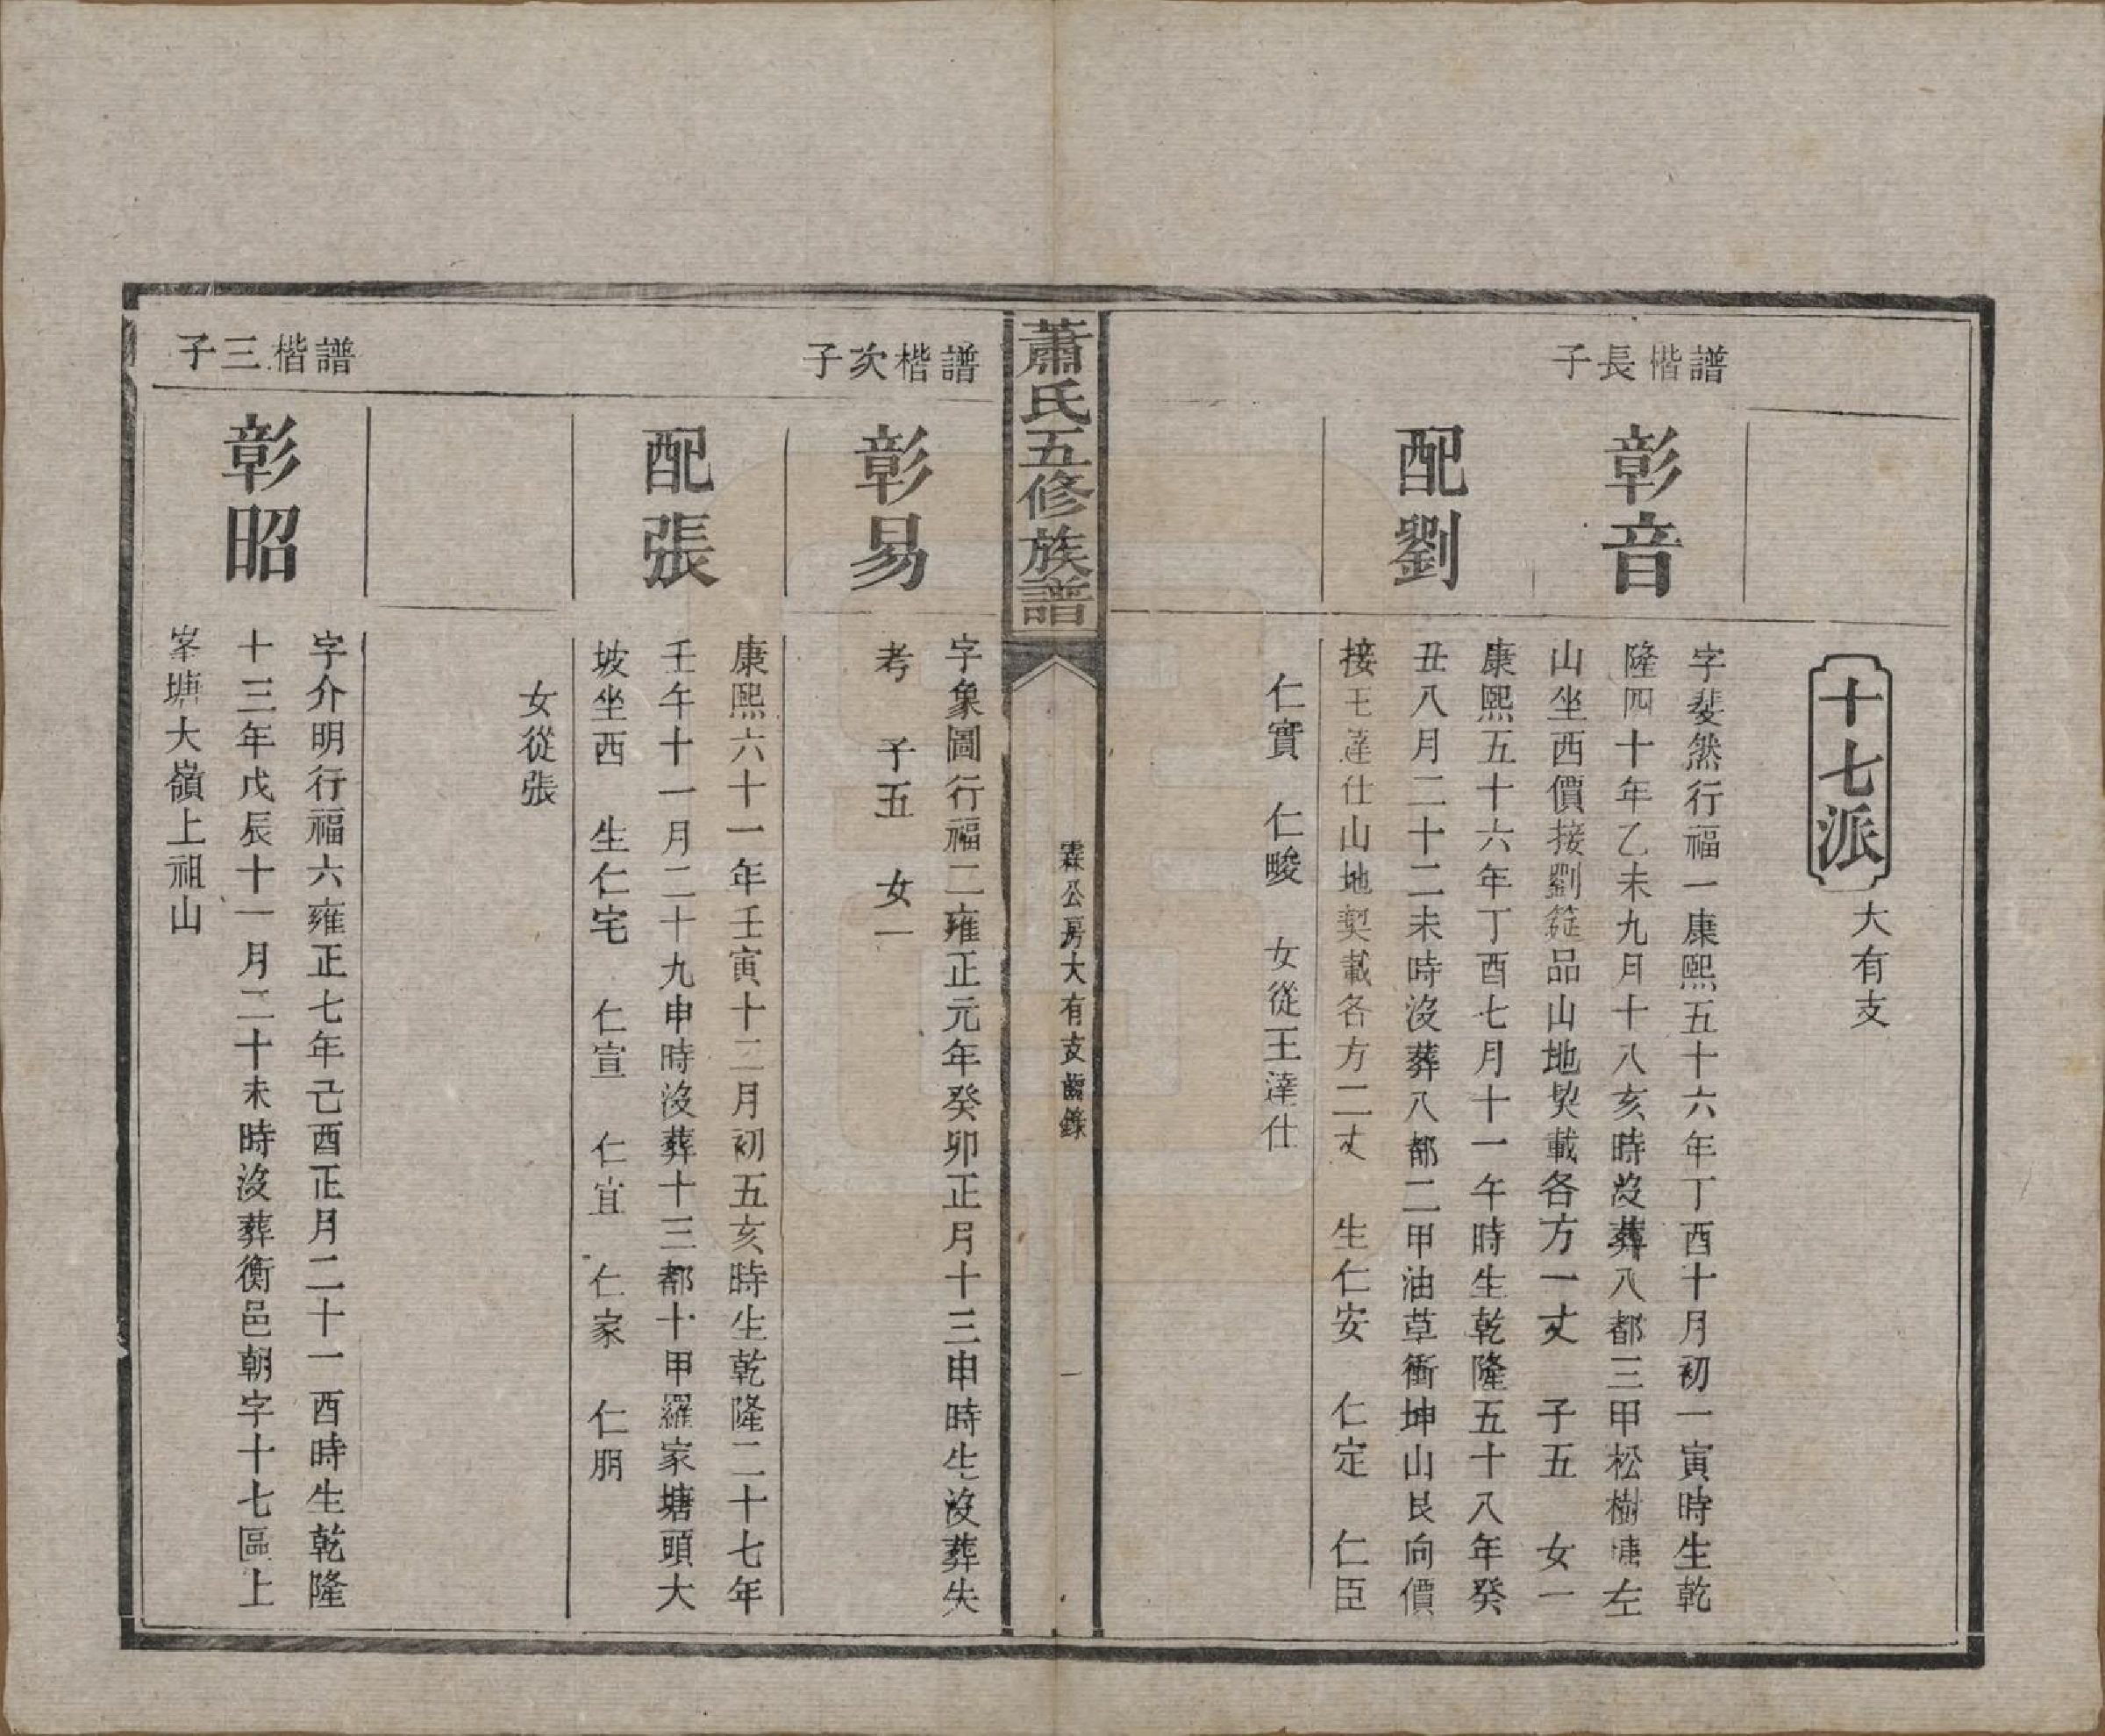 十七派 大有支
譜楷長子
彰音
字斐然行福一康熙五十六年丁酉十月初一寅時生乾
隆四十年乙未九月十八亥時没葬八都三甲松樹塘左
山坐西價接劉筵品山地契載各方一丈 子五 女一
配劉
康熙五十六年丁酉七月十一午時生乾隆五十八年癸
丑八月二十二未時没葬八都二甲油草衝坤山艮向價
接王達仕山地契載各方二丈 生仁安 仁定 仁臣
仁實 仁畯 女從王達仕
蕭氏五修族譜
霖公房大有支齒錄
一
譜楷次子
彰易
字象圖行福二雍正元年癸卯正月十三申時生没葬失
考 子五 女一
配張
康熙六十一年壬寅十二月初五亥時生乾隆二十七年
壬午十一月二十九申時没葬十三都十甲羅家塘頭大
坡坐西 生仁宅 仁宣 仁宜 仁家 仁朋
女從張
譜楷三子
彰昭
字介明行福六雍正七年己酉正月二十一酉時生乾隆
十三年戊辰十一月二十未時没葬衡邑朝字十七區上
峯塘大嶺上祖山